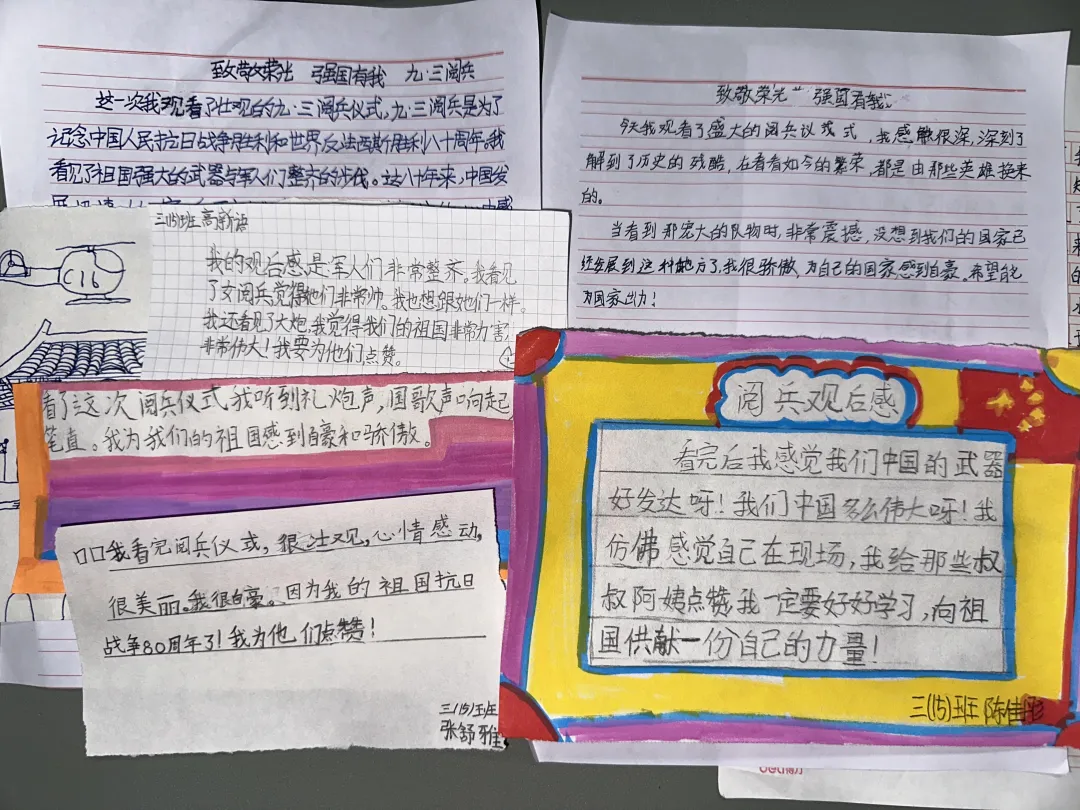 致敬荣光 强国有我 九·三阅兵
这一次我观看了壮观的九·三阅兵仪式,九·三阅兵是为了
记念中国人民抗日战争胜利和世界反法西斯胜利八十周年。我
看见了祖国强大的武器与军人们整齐的步伐。这八十年来,中国发
致敬荣光" 强国有我。
今天我观看了盛大的阅兵议式,我感触很深,深刻了
解到了历史的残酷,在看看如今的繁荣,都是由那些英雄换来
的。
当看到那宏大的队物时,非常震撼,没想到我们的国家已
经发展到这种地方了,我很骄傲,为自己的国家感到自豪。希望能
为国家出力!
三(15)班高
我的观后感是军人们非常整齐。我看见
了女阅兵觉得她们非常帅。我也想跟她们一样。
我还看见了大炮,我觉得我们的祖国非常力害
非常伟大!我要为他们点赞。
C16
看了这次阅兵仪式,我听到礼炮声,国歌声响起
笔直。我为我们的祖国感到自豪和骄傲。
口口我看完阅兵仪式,很壮观,心情感动,
很美丽。我很自豪。因为我的祖国抗日
战争80周年了!我为他们点赞!
三(15)班
张舒雅
阅兵观后感
看完后我感觉我们中国的武器
好发达呀!我们中国多么伟大呀!我
仿佛感觉自己在现场,我给那些叔
叔阿姨点赞,我一定要好好学习,向祖
国供献一份自己的力量!
三(15)班 陈佳彤